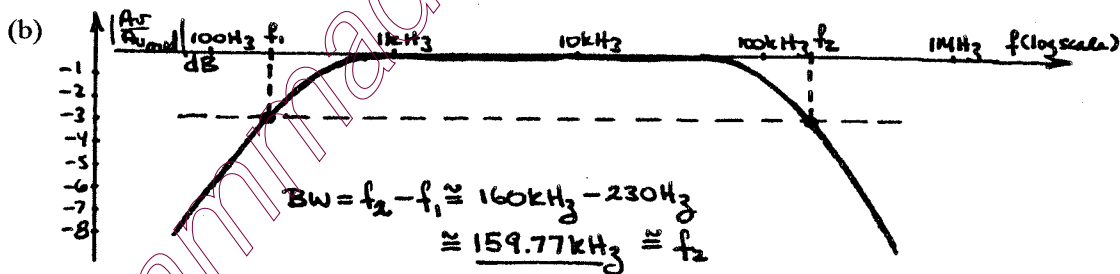 (b)
|Av/Av mid| dB 100Hz f₁ 1kHz 10kHz 100kHz f₂ 1MHz f(log scale)
-1
-2
-3
-4
-5
-6
-7
-8
BW = f₂ - f₁ ≅ 160kHz - 230Hz
≅ 159.77kHz ≅ f₂